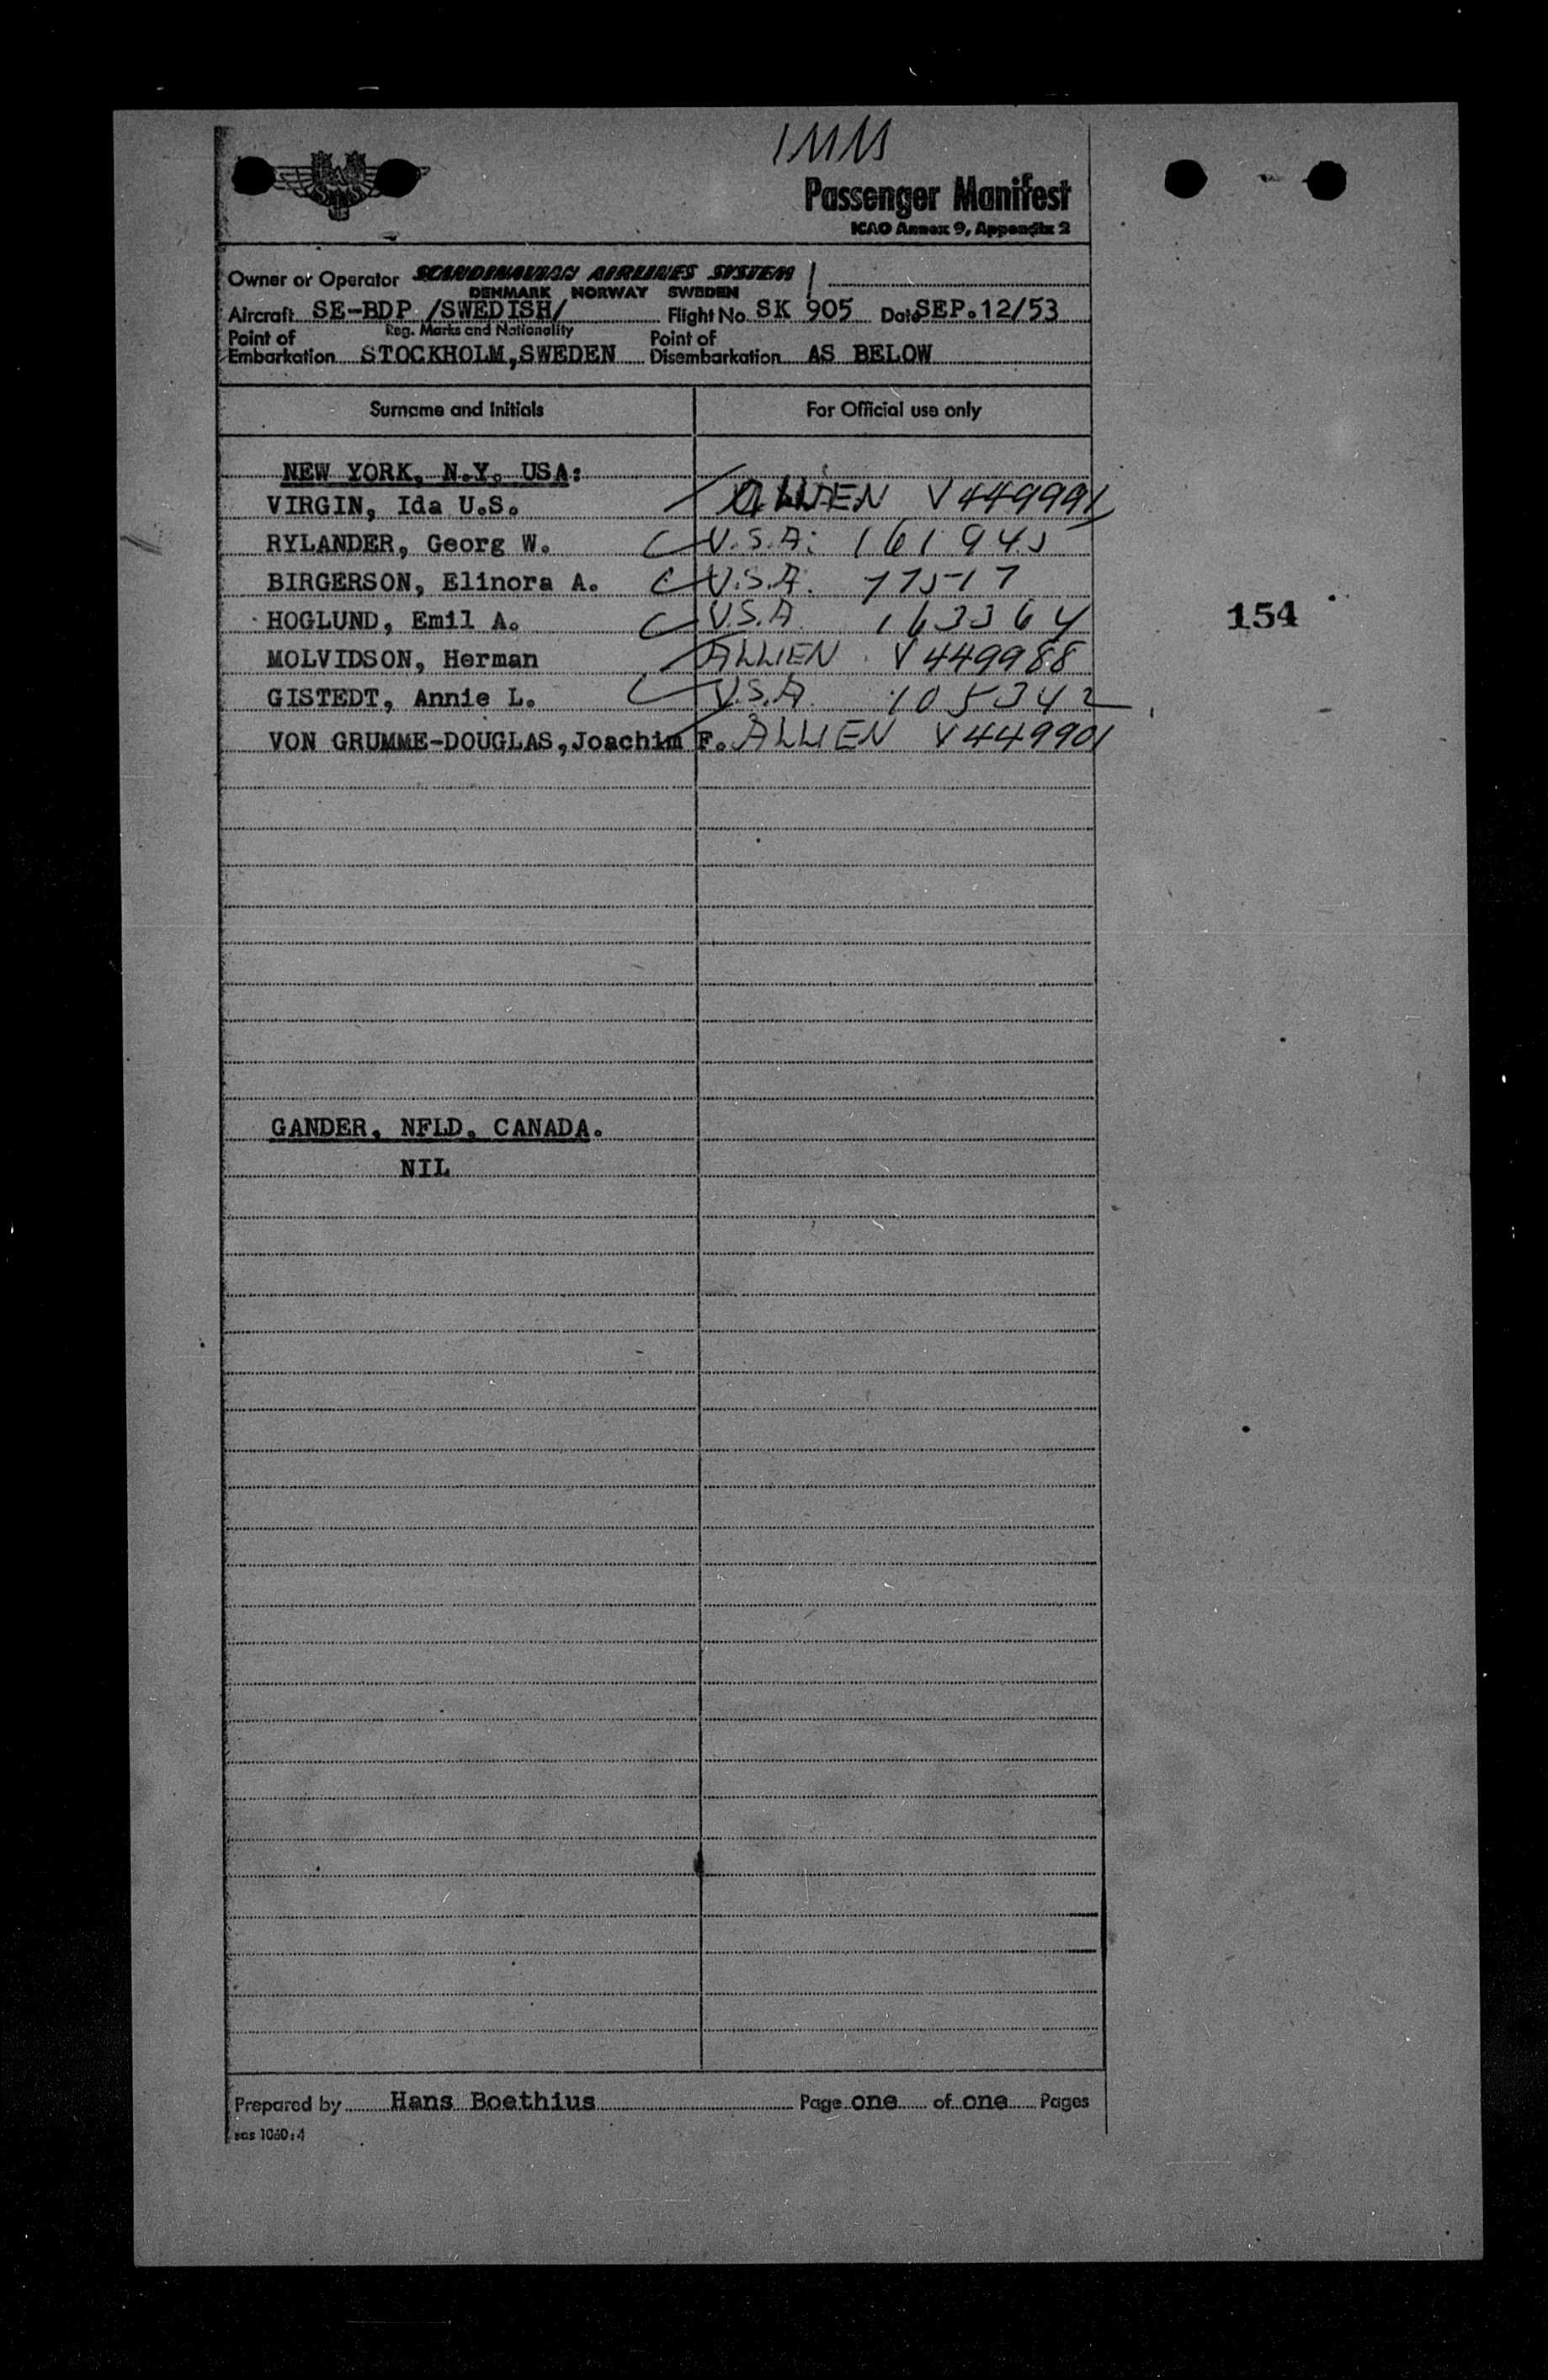 IMM
SAS
Passenger Manifest
ICAO Annex 9, Appendix 2
Owner or Operator SCANDINAVIAN AIRLINES SYSTEM
DENMARK NORWAY SWEDEN
Aircraft SE-BDP /SWEDISH/ Flight No. SK 905 Date SEP.12/53
Reg. Marks and Nationality
Point of Embarkation STOCKHOLM, SWEDEN Point of Disembarkation AS BELOW
Surname and Initials For Official use only
NEW YORK, N.Y. USA:
VIRGIN, Ida U.S. ALLIEN V449991
RYLANDER, Georg W. U.S.A. 161945
BIRGERSON, Elinora A. U.S.A. 77517
HOGLUND, Emil A. U.S.A. 163364
154
MOLVIDSON, Herman ALLIEN V449988
GISTEDT, Annie L. U.S.A. 105342
VON GRUMME-DOUGLAS, Joachim F. ALLIEN V449901
GANDER, NFLD, CANADA.
NIL
Prepared by Hans Boethius Page one of one Pages
sas 1060:4